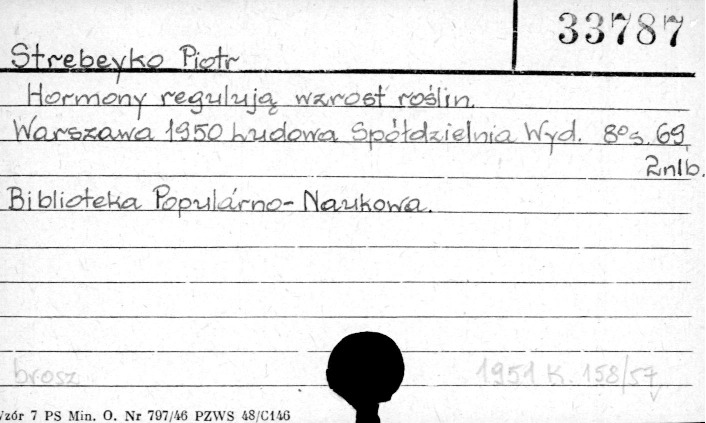 33787
Strebeyko Piotr
Hormony regulują wzrost roślin.
Warszawa 1950 Ludowa Spółdzielnia Wyd. 8° s. 69,
2nlb.
Biblioteka Popularno-Naukowa.
brosz
1951 K. 158/57
Wzór 7 PS Min. O. Nr 797/46 PZWS 48/C146